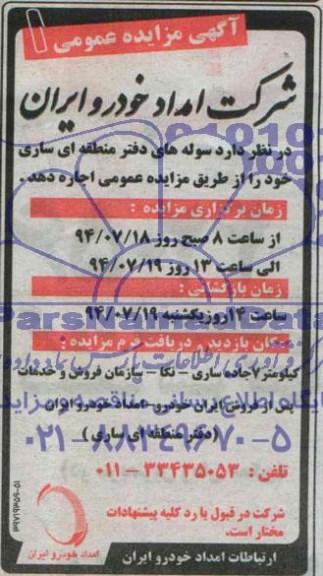 آگهی مزایده عمومی
شرکت امداد خودرو ایران
در نظر دارد سوله های دفتر منطقه ای ساری
خود را از طریق مزایده عمومی اجاره دهد.
زمان برگزاری مزایده :
از ساعت ۸ صبح روز ۹۴/۰۷/۱۸
الی ساعت ۱۳ روز ۹۴/۰۷/۱۹
زمان بازگشائی :
ساعت ۱۴ روز یکشنبه ۹۴/۰۷/۱۹
مکان بازدید و دریافت فرم مزایده :
کیلومتر ۷ جاده ساری - نکا - سازمان فروش و خدمات
پس از فروش ایران خودرو - امداد خودرو ایران
(دفتر منطقه ای ساری)
ParsNamadData
۰۲۱-۸۸۳۴۹۶۷۰-۵
تلفن : ۳۳۴۳۵۰۵۳ - ۰۱۱
شرکت در قبول یا رد کلیه پیشنهادات
مختار است.
امداد خودرو ایران
ارتباطات امداد خودرو ایران